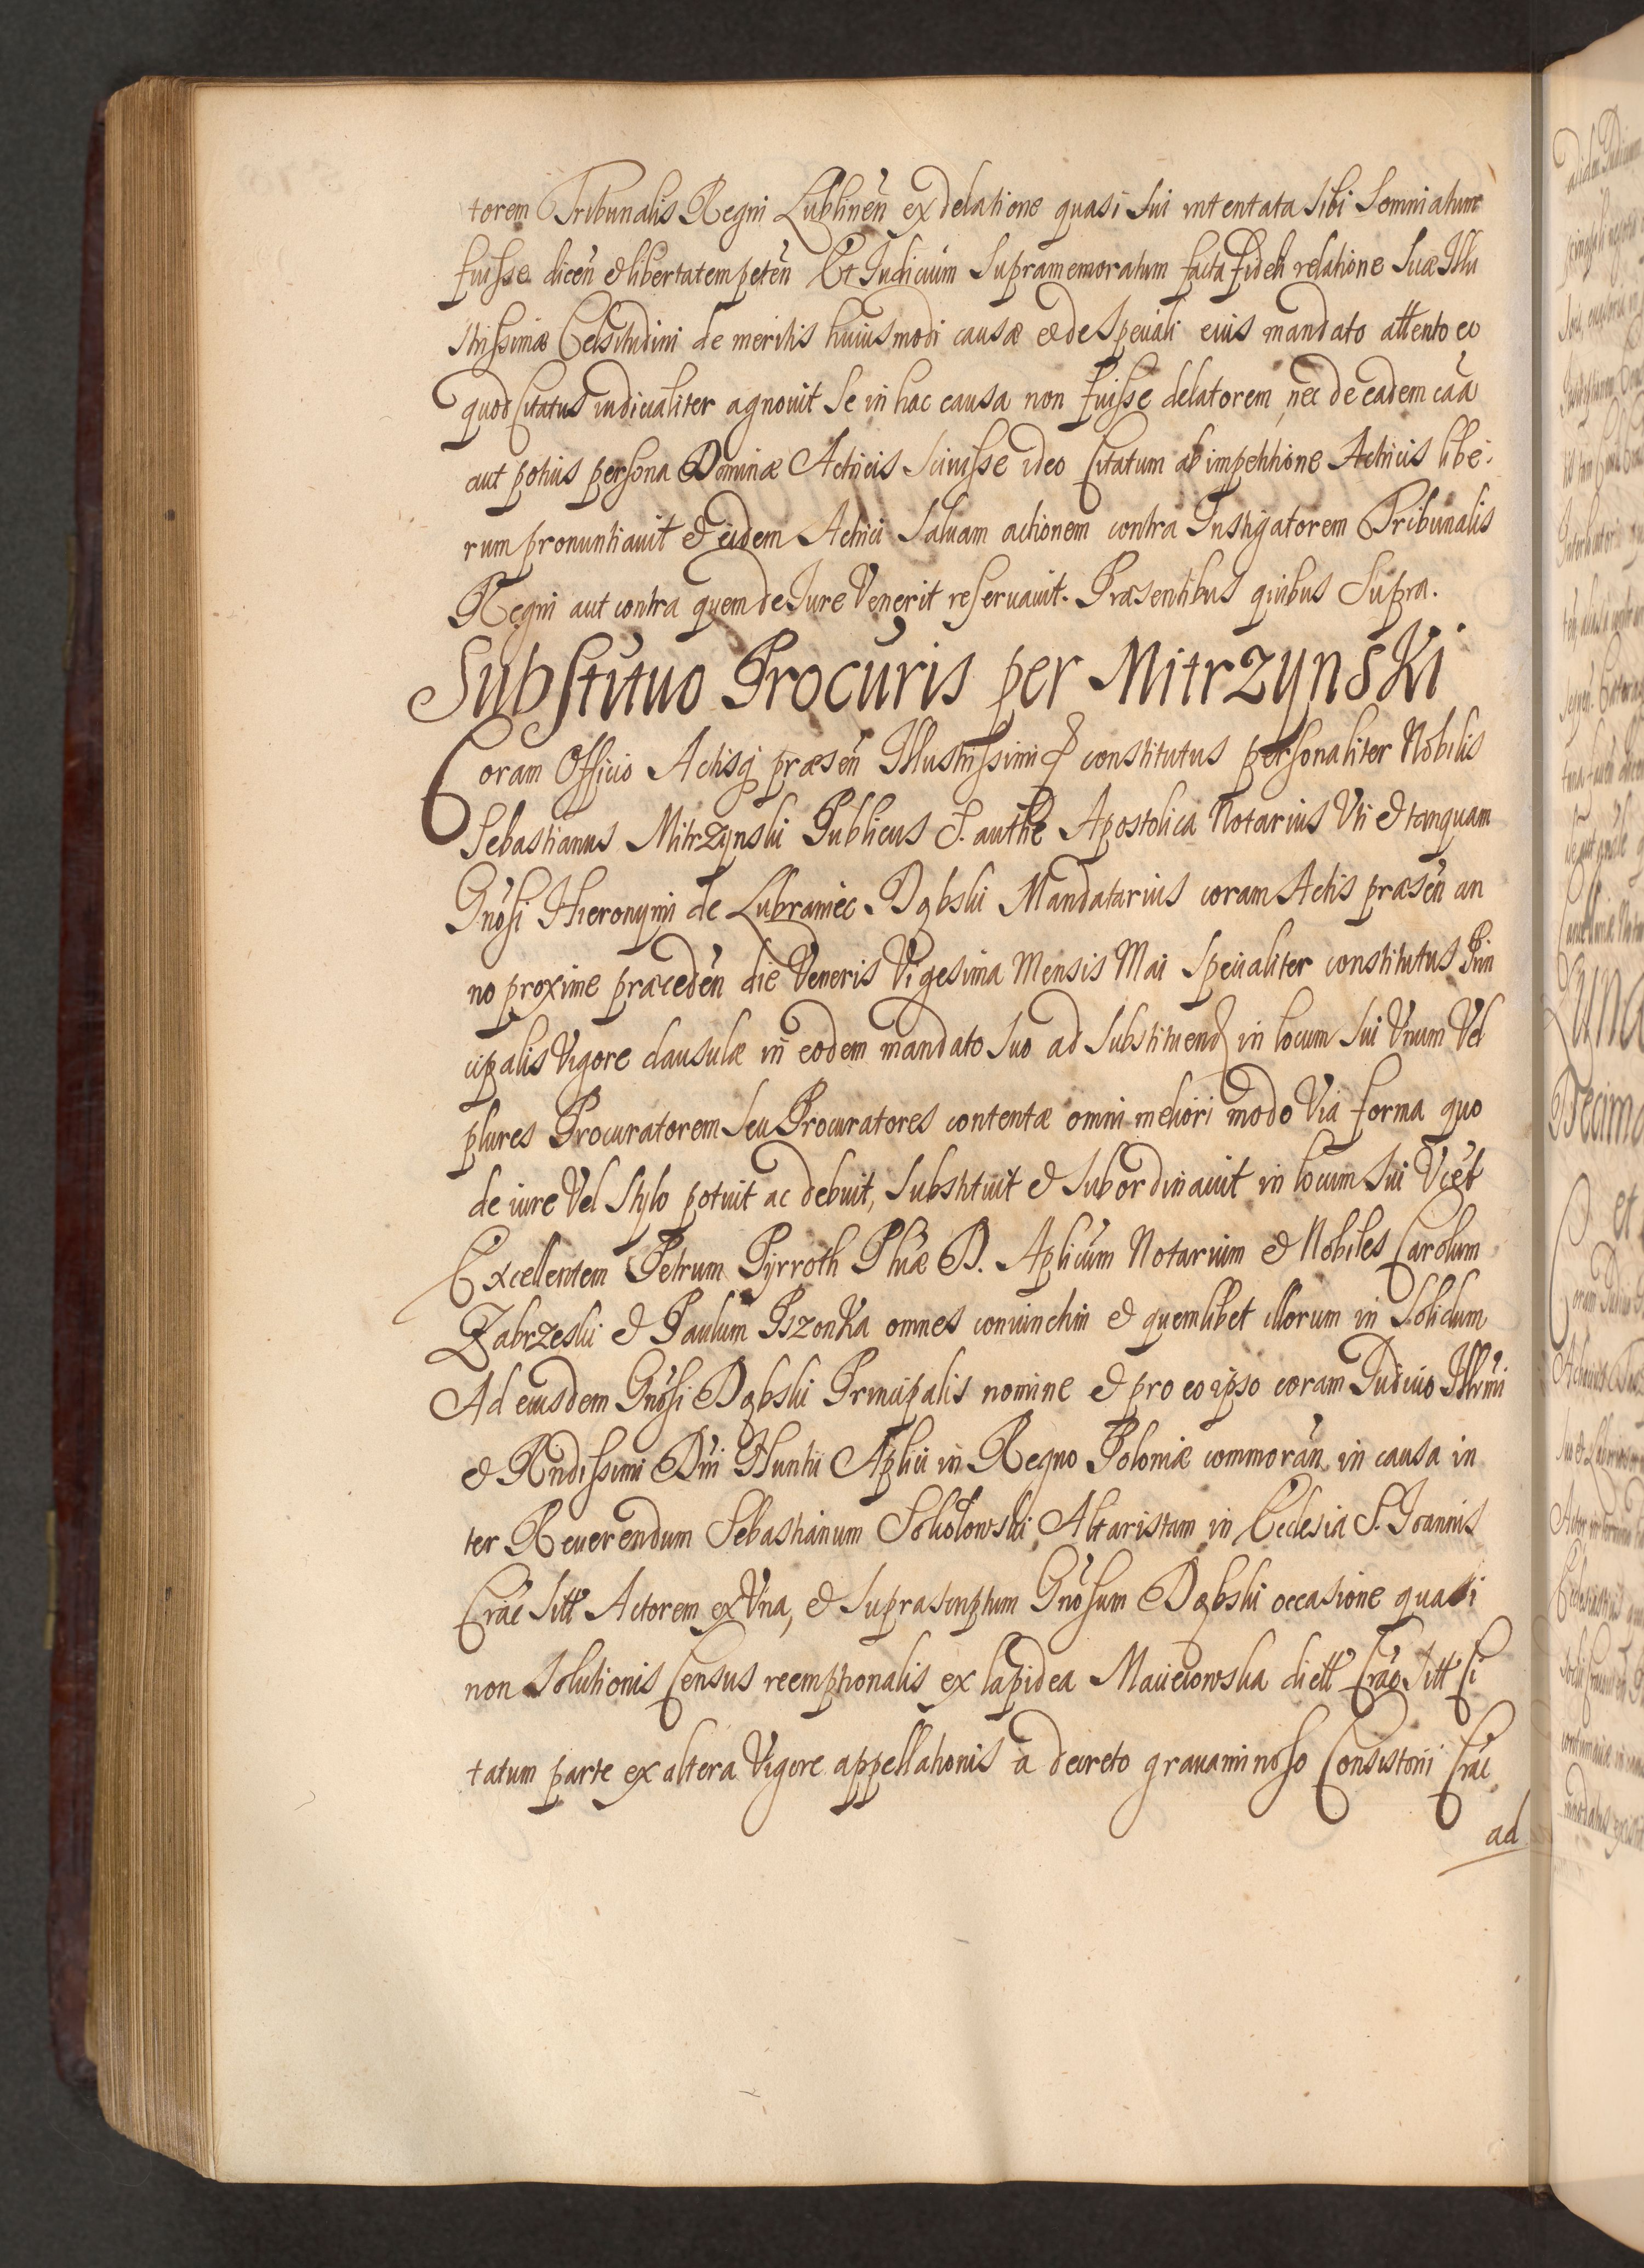 torem Tribunalis Regni Lublineñ ex delatione quasi sui intentata sibi somniatum
fuisse diceñ et libertatem peteñ Et Iudicium supramemoratum facta fideli relatione Suæ Illu
strissimæ Celsitudini de meritis huiusmodi causæ et de speciali eius mandato attento eo
quod Citatus iudicialiter agnovit se in hac causa non fuisse delatorem, nec de eadem caã
aut potius persona Dominæ Actricis scivisse ideo Citatum ab impetitione Actricis libe:
rum pronuntiavit et eidem Actrici salvam actionem contra Instigatorem Tribunalis
Regni aut contra quem de Iure Venerit reservavit. Præsentibus quibus Supra.
Substituo Procuris per Mitrzynski
Coram Officio Actisq præseñ Illustrissimi constitutus personaliter Nobilis
Sebastianus Mitrzynski Publicus S. authe Apostolica Notarius Uti et tanquam
Gnosi Hieronymi de Lubraniec Dąbski Mandatarius coram Actis præseñ an
no proxime præcedeñ die Veneris Vigesima Mensis Mai specialiter constitutus Prin
cipalis Vigore clausulæ in eodem mandato suo ad substituend in locum sui Unum Vel
plures Procuratorem seu Procuratores contentæ omni meliori modo Via forma quo
de iure Vel stylo potuit ac debuit, substituit et subordinavit in locum sui
Excellentem Petrum Pyrroth Phiæ D. Aplicum Notarium et Nobiles Carolum
Zabrzeski et Paulum Pszonka omnes coniunctim et quemlibet illorum in solidum
Ad eiusdem Gnosi Dąbski Principalis nomine et pro eo ipso coram Iudicio Illrmi
et Rndissimi Dni Nuntii Aplici in Regno Poloniæ commorañ in causa in
ter Reverendum Sebastianum Sokołowski Altaristam in Ecclesia S. Ioannis
Crac sitt Actorem ex Una, et suprascriptum Gnosum Dąbski occasione quasi
non solutionis Census reemptionalis ex lapidea Macieiowska Crac sitt Ci
tatum parte ex altera Vigore appellationis a decreto gravaminoso Consistorii Crac
ad